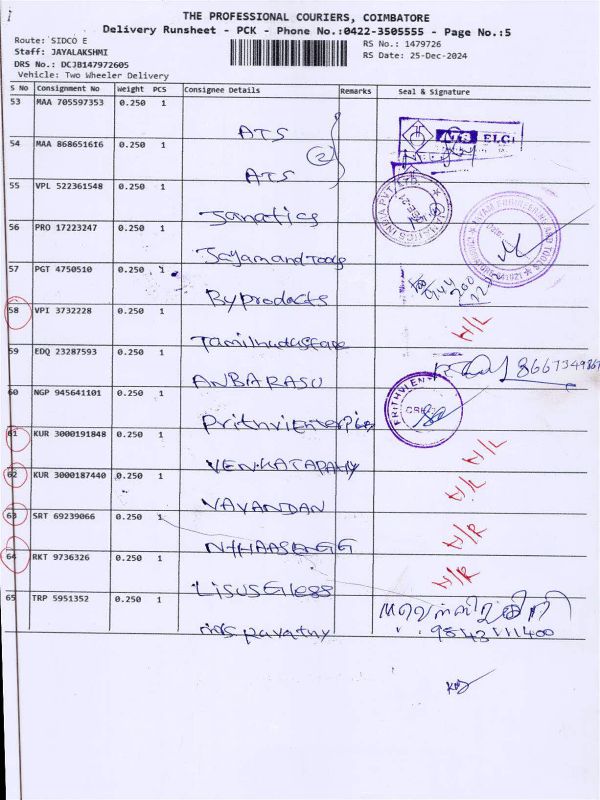 THE PROFESSIONAL COURIERS, COIMBATORE
Delivery Runsheet - PCK - Phone No.:0422-3505555 - Page No.:5
Route: SIDCO E
RS No.: 1479726
Staff: JAYALAKSHMI
RS Date: 25-Dec-2024
DRS No.: DCJB147972605
Vehicle: Two Wheeler Delivery
S No Consignment No Weight PCS Consignee Details Remarks Seal & Signature
53 MAA 705597353 0.250 1
ATS
ATS ELGI
54 MAA 868651616 0.250 1
2
ATS
55 VPL 522361548 0.250 1
Janatics
56 PRO 17223247 0.250 1
Jayam and Tools
57 PGT 4750510 0.250 1
Byproducts
58 VPI 3732228 0.250 1
H/L
59 EDQ 23287593 0.250 1
ANBARASU
60 NGP 945641101 0.250 1
61 KUR 3000191848 0.250 1
H/L
62 KUR 3000187440 0.250 1
VAYANDAN
63 SRT 69239066 0.250 1
A/R
64 RKT 9736326 0.250 1
A/R
65 TRP 5951352 0.250 1